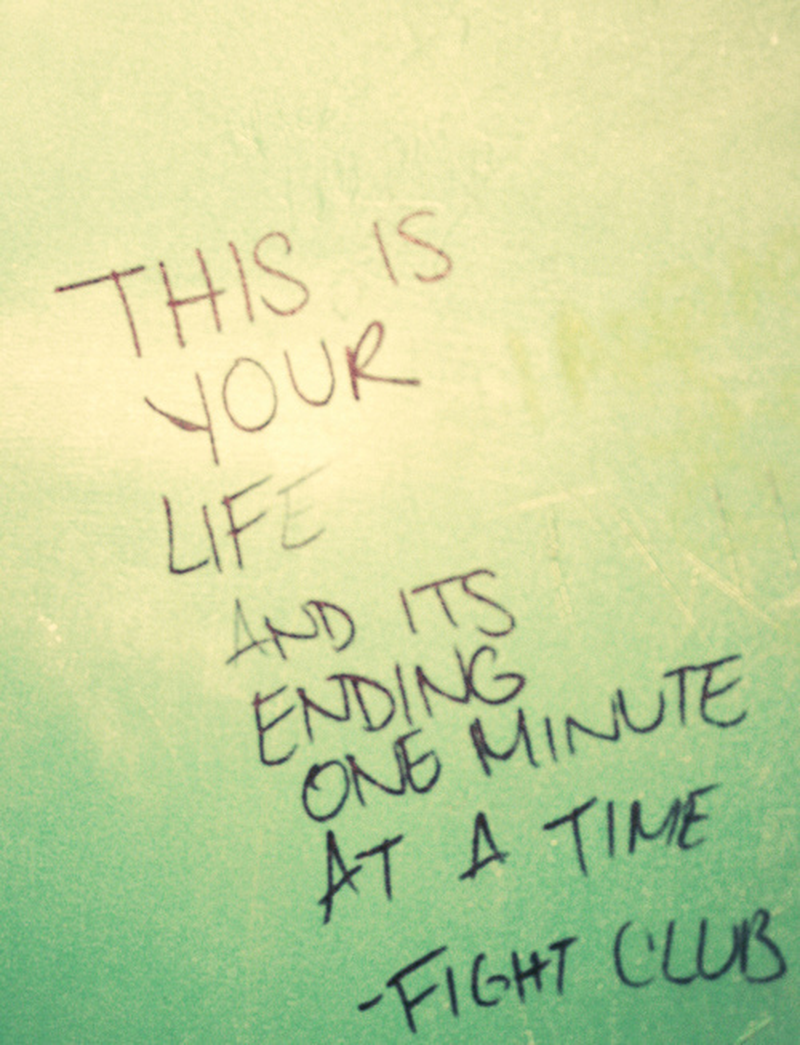 THIS IS
YOUR
LIFE
AND ITS
ENDING
ONE MINUTE
AT A TIME
-FIGHT CLUB